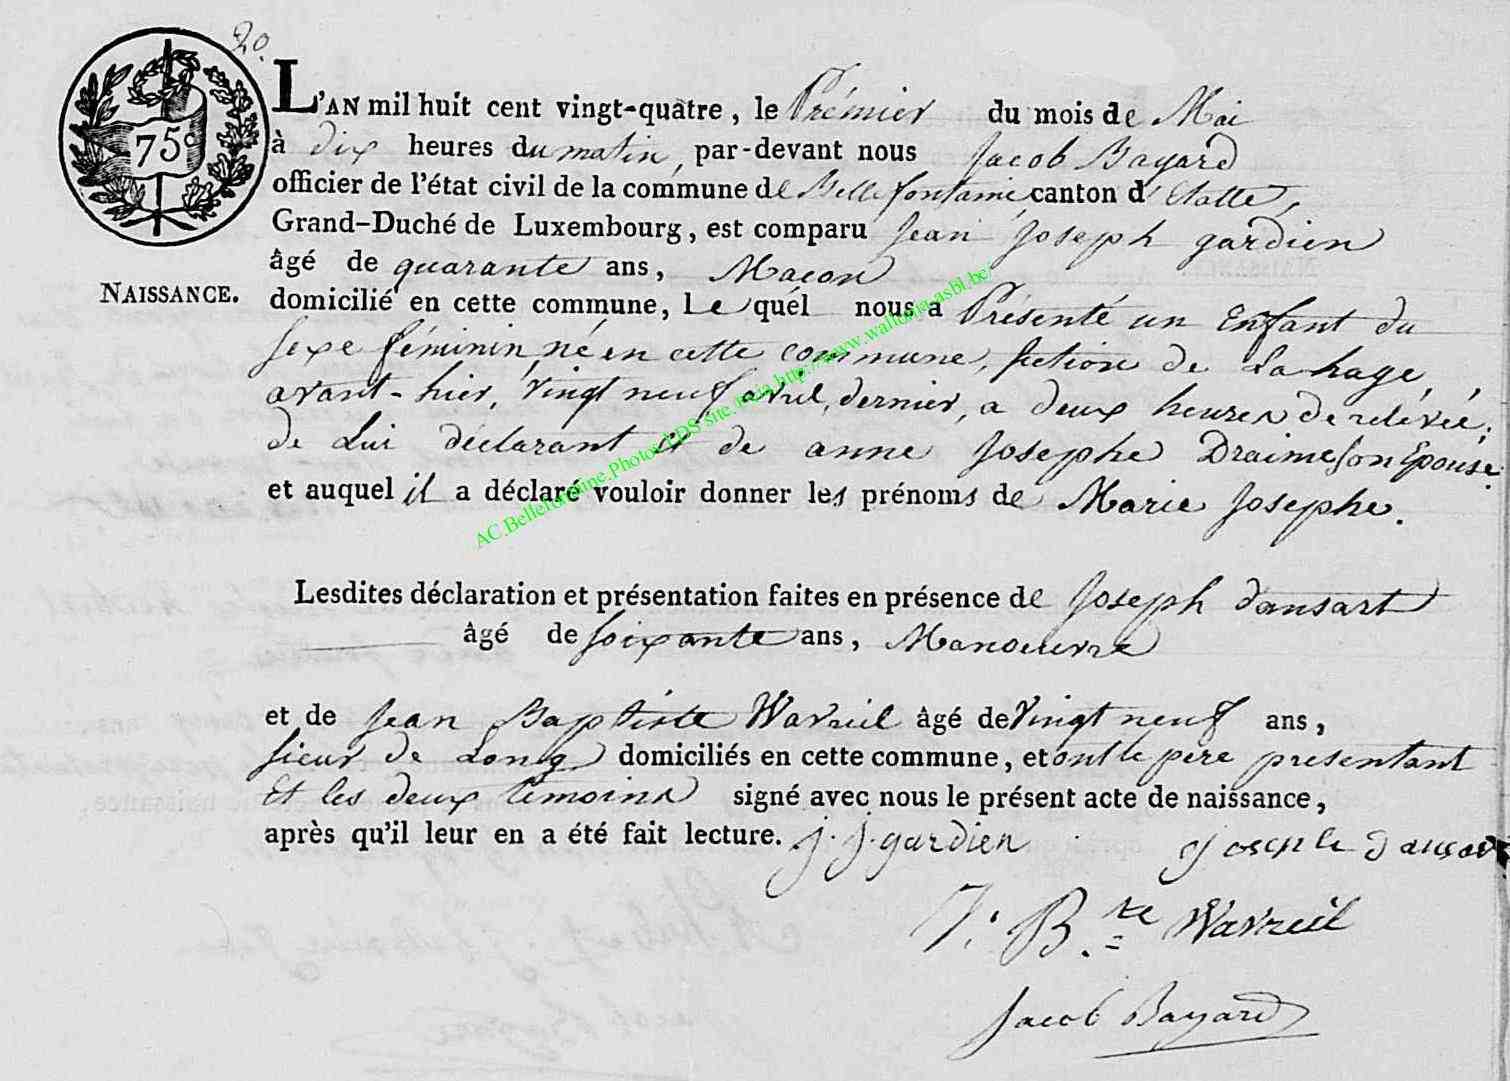 20.
75c
L'AN mil huit cent vingt-quatre, le Prémier du mois de Mai
à dix heures du matin, par-devant nous Jacob Bayard
officier de l'état civil de la commune de Bellefontaine canton d'Etalle,
Grand-Duché de Luxembourg, est comparu Jean Joseph gardien
âgé de quarante ans, Macon
NAISSANCE.
domicilié en cette commune, Le quél nous a Présenté un Enfant du
sexe féminin, né en cette commune, section de Lahage,
avant-hier, vingt neuf avril, dernier, a deux heures de relévée,
de Lui déclarant et de anne Josephe Draime son Epouse.
et auquel il a déclaré vouloir donner les prénoms de Marie Josephe.
AC.Bellefontaine.Photos.GDS site.luxia.http://www.wallonia-asbl.be/
Lesdites déclaration et présentation faites en présence de Joseph dansart
âgé de soixante ans, Manoeuvre
et de Jean Baptiste Wavreil âgé de vingt neuf ans,
sieur de Long domiciliés en cette commune, et ont le pere presentant
Et les deux temoins signé avec nous le présent acte de naissance,
après qu'il leur en a été fait lecture. j. j. gardien joseph dansar
J. B.te Wavreil
Jacob Bayard